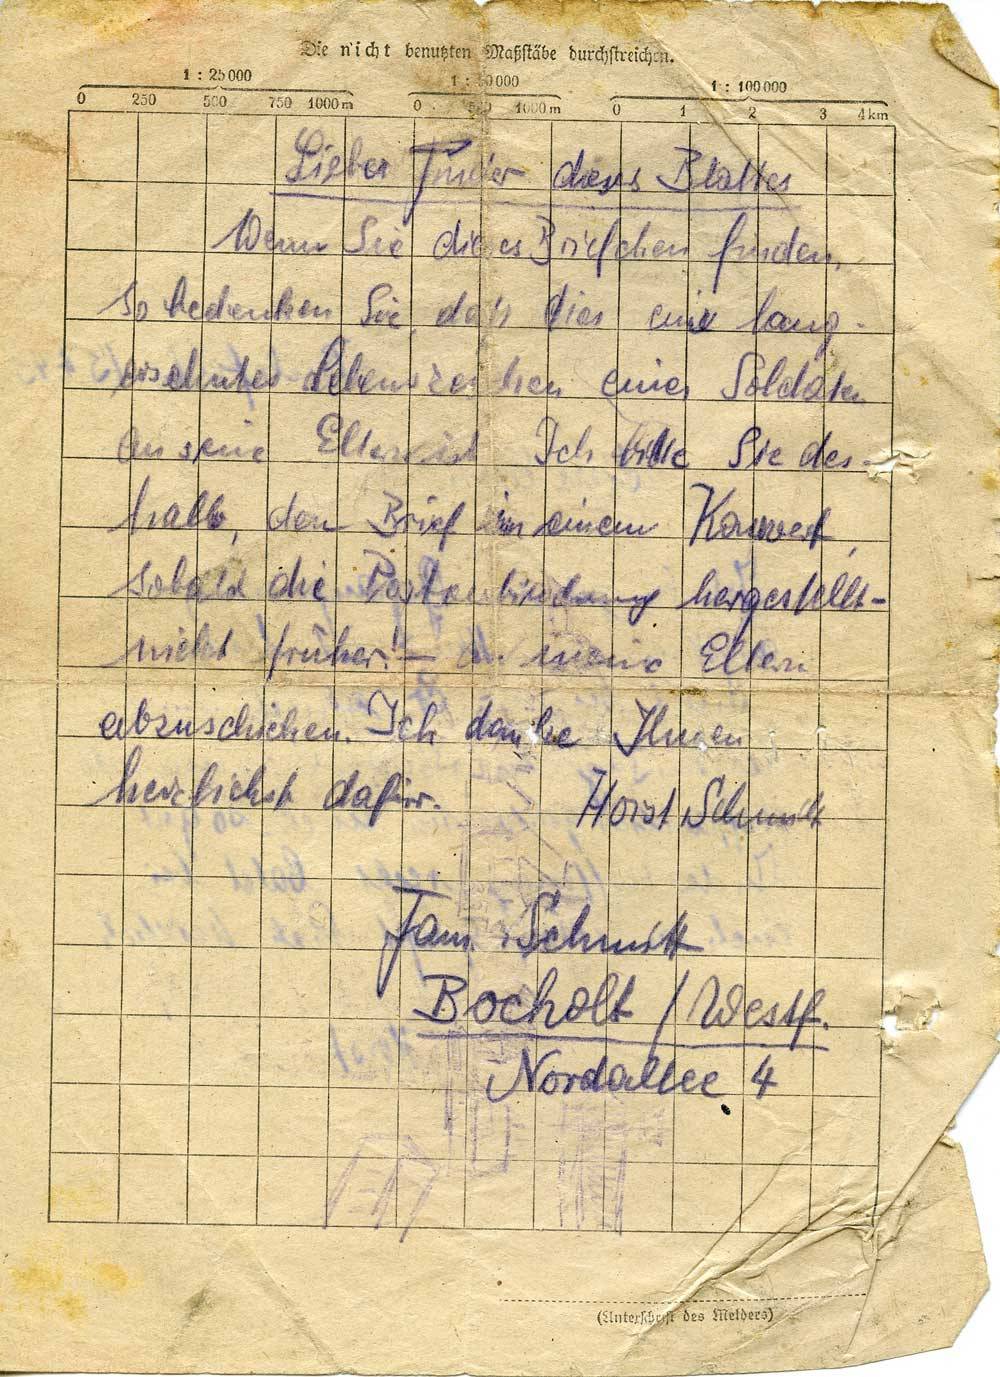 Die nicht benutzten Maßstäbe durchstreichen.
1 : 25 000 1 : 50 000 1 : 100 000
0 250 500 750 1000 m 0 500 1000 m 0 1 2 3 4 km
Lieber Finder dieses Blattes
Wenn Sie dieses Briefchen finden,
so bedenken Sie, daß dies ein lang-
ersehntes Lebenszeichen eines Soldaten
an seine Eltern ist. Ich bitte Sie des-
halb, den Brief in einem Kouvert,
sobald die Postverbindung hergestellt -
nicht früher! - an meine Eltern
abzuschicken. Ich danke Ihnen
herzlichst dafür. Horst Schmitt
Fam. Schmitt
Bocholt / Westf.
Nordallee 4
(Unterschrift des Melders)